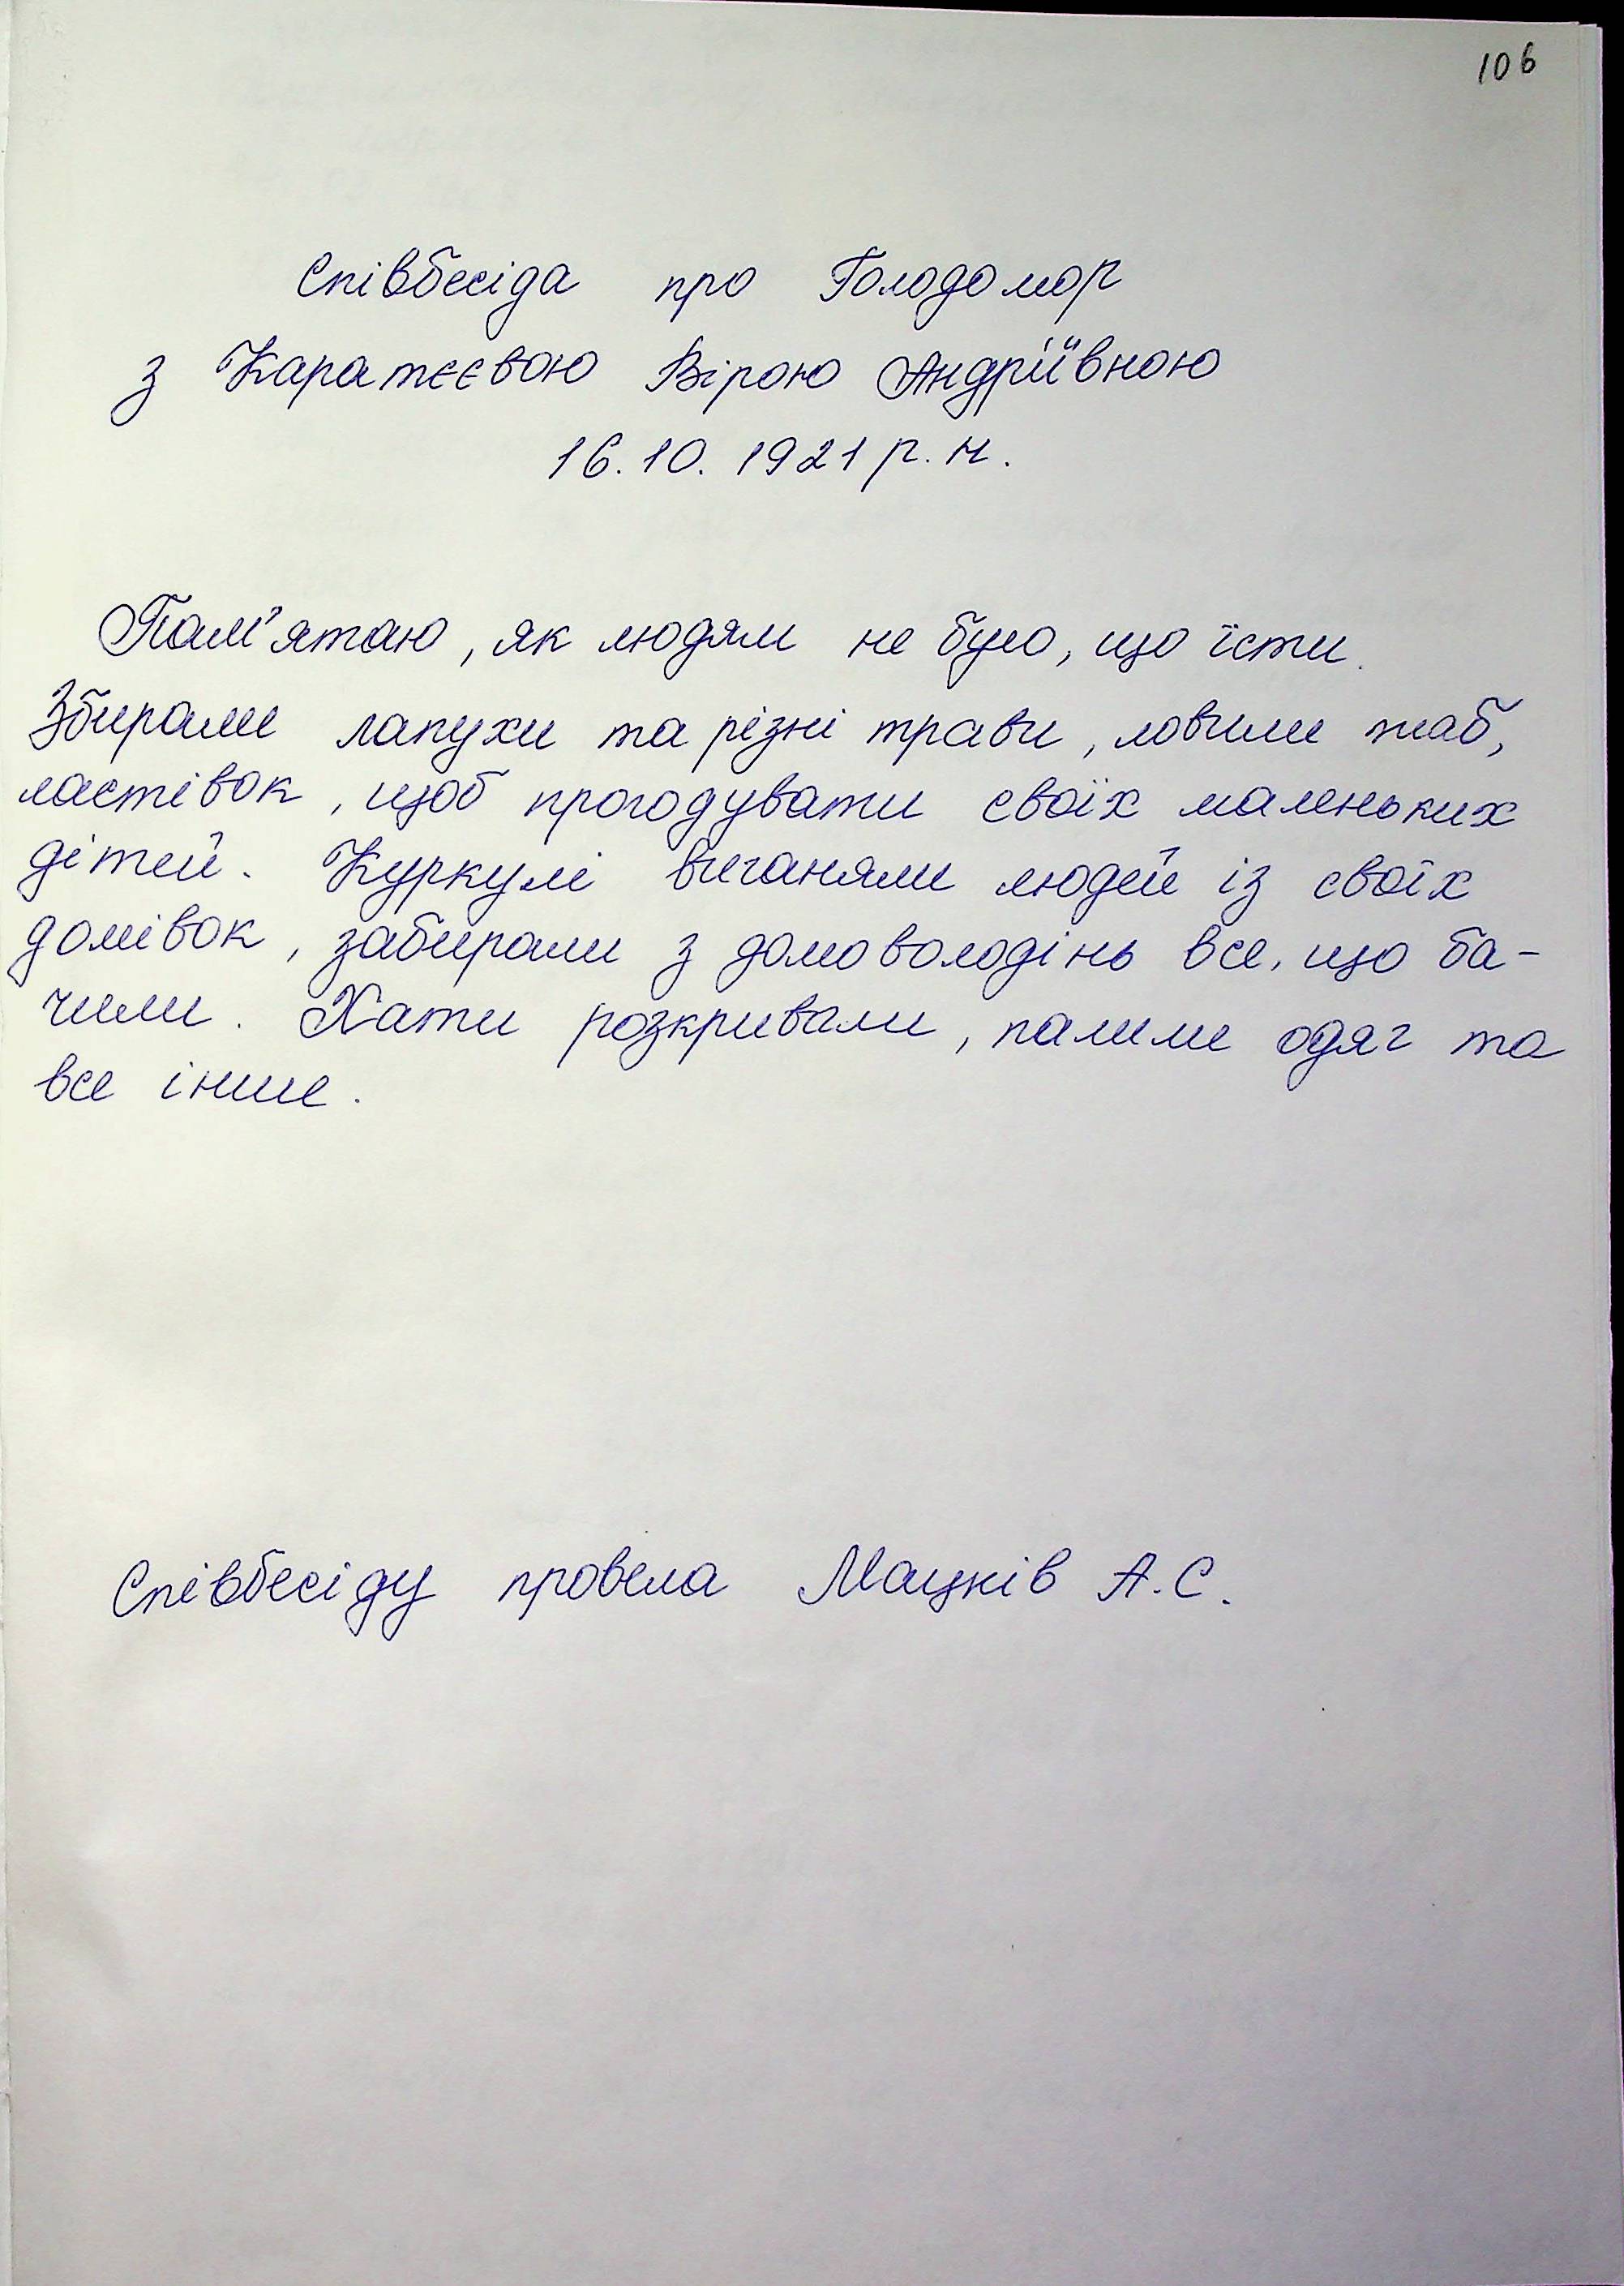 106
Співбесіда про Голодомор
з Каратєєвою Вірою Андріївною
16.10.1921 р.н.
Пам'ятаю, як людям не було, що їсти.
Збирали лапухи та різні трави, ловили жаб,
ластівок, щоб прогодувати своїх маленьких
дітей. Куркулі виганяли людей із своїх
домівок, забирали з домоволодінь все, що ба-
чили. Хати розкривали, палили одяг та
все інше.
Співбесіду провела Мацків А.С.